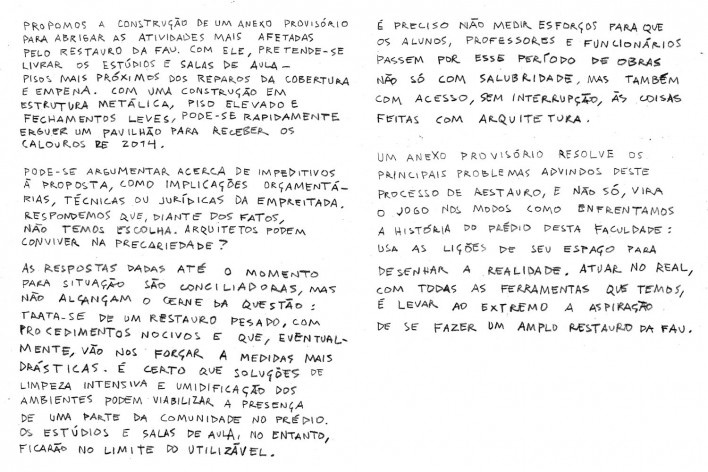 PROPOMOS A CONSTRUÇÃO DE UM ANEXO PROVISÓRIO
PARA ABRIGAR AS ATIVIDADES MAIS AFETADAS
PELO RESTAURO DA FAU. COM ELE, PRETENDE-SE
LIVRAR OS ESTÚDIOS E SALAS DE AULA –
PISOS MAIS PRÓXIMOS DOS REPAROS DA COBERTURA
E EMPENA. COM UMA CONSTRUÇÃO EM
ESTRUTURA METÁLICA, PISO ELEVADO E
FECHAMENTOS LEVES, PODE-SE RAPIDAMENTE
ERGUER UM PAVILHÃO PARA RECEBER OS
CALOUROS DE 2014.
PODE-SE ARGUMENTAR ACERCA DE IMPEDITIVOS
À PROPOSTA, COMO IMPLICAÇÕES ORÇAMENTÁ-
RIAS, TÉCNICAS OU JURÍDICAS DA EMPREITADA.
RESPONDEMOS QUE, DIANTE DOS FATOS,
NÃO TEMOS ESCOLHA. ARQUITETOS PODEM
CONVIVER NA PRECARIEDADE?
AS RESPOSTAS DADAS ATÉ O MOMENTO
PARA SITUAÇÃO SÃO CONCILIADORAS, MAS
NÃO ALÇANÇAM O CERNE DA QUESTÃO:
TRATA-SE DE UM RESTAURO PESADO, COM
PROCEDIMENTOS NOCIVOS E QUE, EVENTUAL-
MENTE, VÃO NOS FORÇAR A MEDIDAS MAIS
DRÁSTICAS. É CERTO QUE SOLUÇÕES DE
LIMPEZA INTENSIVA E UMIDIFICAÇÃO DOS
AMBIENTES PODEM VIABILIZAR A PRESENÇA
DE UMA PARTE DA COMUNIDADE NO PRÉDIO.
OS ESTÚDIOS E SALAS DE AULA, NO ENTANTO,
FICARÃO NO LIMITE DO UTILIZÁVEL.
É PRECISO NÃO MEDIR ESFORÇOS PARA QUE
OS ALUNOS, PROFESSORES E FUNCIONÁRIOS
PASSEM POR ESSE PERÍODO DE OBRAS
NÃO SÓ COM SALUBRIDADE, MAS TAMBÉM
COM ACESSO, SEM INTERRUPÇÃO, ÀS COISAS
FEITAS COM ARQUITETURA.
UM ANEXO PROVISÓRIO RESOLVE OS
PRINCIPAIS PROBLEMAS ADVINDOS DESTE
PROCESSO DE RESTAURO, E NÃO SÓ, VIRA
O JOGO NOS MODOS COMO ENFRENTAMOS
A HISTÓRIA DO PRÉDIO DESTA FACULDADE:
USA AS LIÇÕES DE SEU ESPAÇO PARA
DESENHAR A REALIDADE. ATUAR NO REAL,
COM TODAS AS FERRAMENTAS QUE TEMOS,
É LEVAR AO EXTREMO A ASPIRAÇÃO
DE SE FAZER UM AMPLO RESTAURO DA FAU.